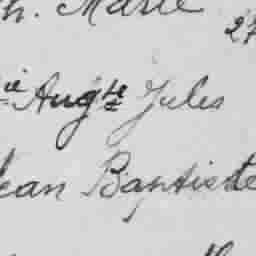 h. Marie
27
ie Augte Jules
Jean Baptiste